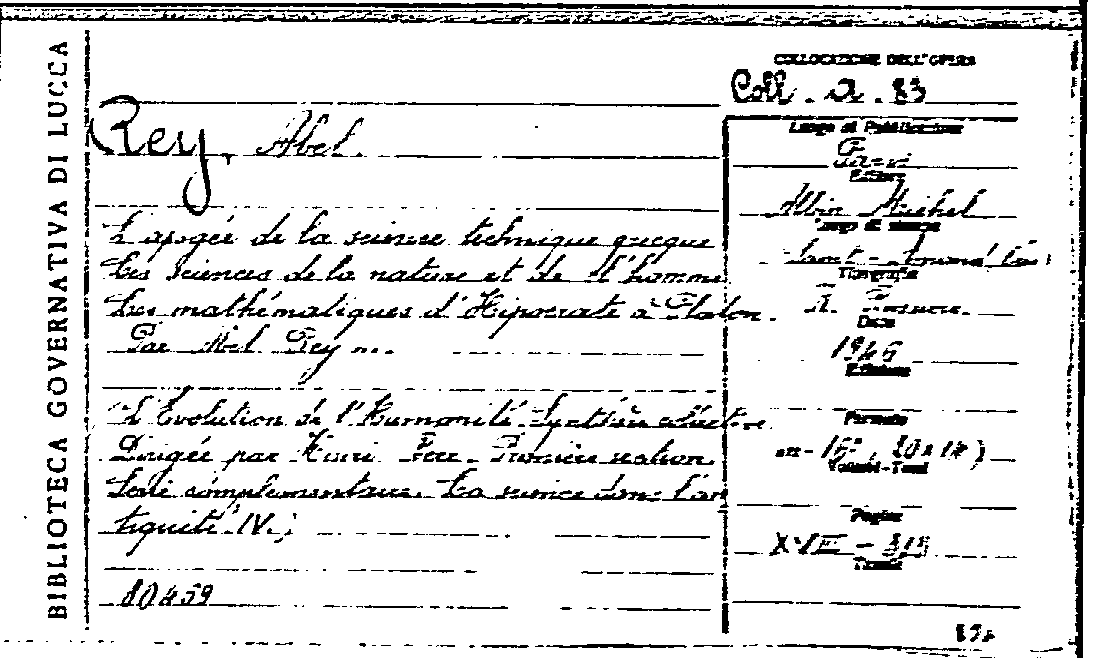 BIBLIOTECA GOVERNATIVA DI LUCCA
COLLOCAZIONE DELL'OPERA
Coll. A. 83
Rey, Abel.
L'apogée de la science technique grecque
Les sciences de la nature et de l'homme
Les mathématiques d'Hipocrate à Platon.
Par Abel Rey ...
L'Evolution de l'Humanité. Synthèse collective
Dirigée par Henri Première section.
complementaire. La science dans l'an
tiquité IV.;
80459
Luogo di Pubblicazione
Parigi
Editore
Albin Michel
Luogo di stampa
Saint-Amand
Tipografia
R.
Data
1946
Edizione
Formato
in-16°,
Volumi-Tomi
Pagine
XVIII - 313
Tavole